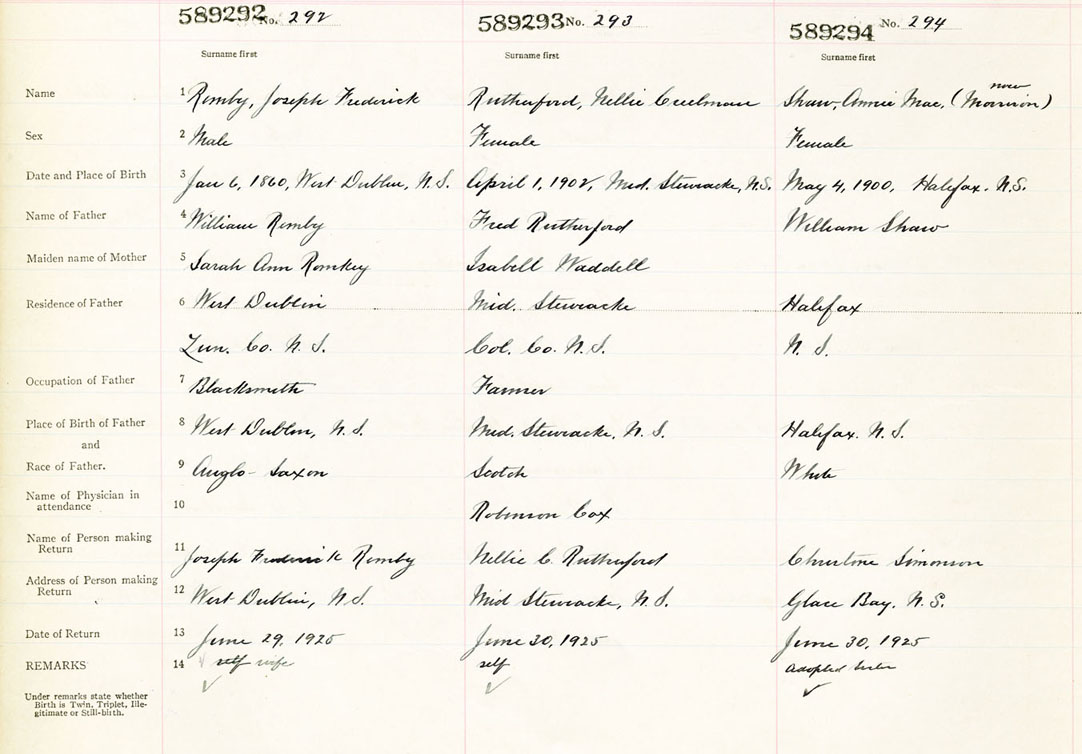 589292 No. 292 589293 No. 293 589294 No. 294
Surname first Surname first Surname first
Name 1 Romby, Joseph Frederick Rutherford, Nellie Creelman Shaw, Annie Mae, (now Morrison)
Sex 2 Male Female Female
Date and Place of Birth 3 Jan 6, 1860, West Dublin, N.S. April 1, 1902, Mid. Stewiacke, N.S. May 4, 1900, Halifax. N.S.
Name of Father 4 William Romby Fred Rutherford William Shaw
Maiden name of Mother 5 Sarah Ann Romkey Isabell Waddell
Residence of Father 6 West Dublin Mid. Stewiacke Halifax
Lun. Co. N.S. Col. Co. N.S. N.S.
Occupation of Father 7 Blacksmith Farmer
Place of Birth of Father 8 West Dublin, N.S. Mid. Stewiacke, N.S. Halifax. N.S.
and
Race of Father. 9 Anglo-Saxon Scotch White
Name of Physician in
attendance 10 Robinson Cox
Name of Person making
Return 11 Joseph Frederick Romby Nellie C. Rutherford Christine Simonson
Address of Person making
Return 12 West Dublin, N.S. Mid Stewiacke, N.S. Glace Bay. N.S.
Date of Return 13 June 29, 1925 June 30, 1925 June 30, 1925
REMARKS 14 self wife self adopted sister
Under remarks state whether
Birth is Twin, Triplet, Ille-
gitimate or Still-birth.